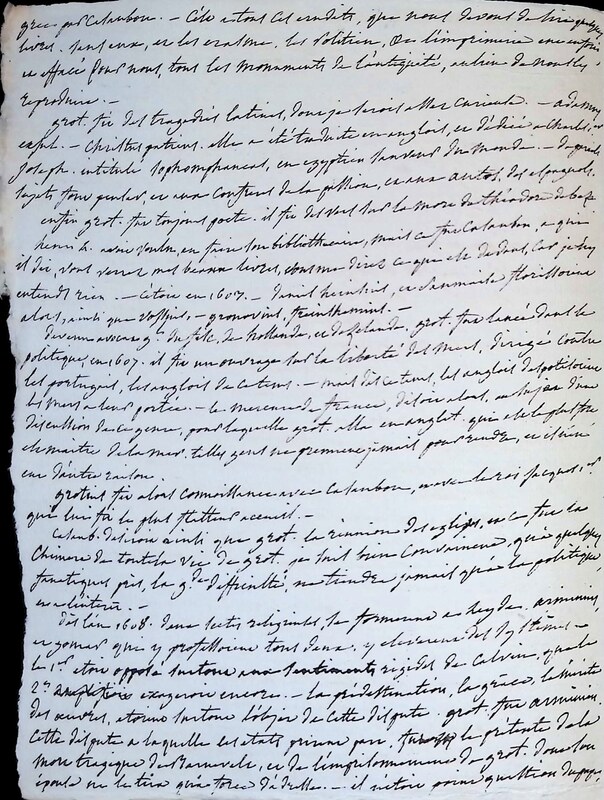 grec par Casaubon. - C'est a tous ces erudits, que nous devons de lire quelques
livres. sans eux, et les erasme. les Politien, &c l'imprimerie eut enfoui
et effacé pour nous, tous les monuments de l'antiquité, au lieu de nous les
reproduire. -
grot. fit des tragedies latines, dont je serois assez curieuse. - adamus
exsul. - Christus patiens. elle a été traduite en anglois, et dédiée a Charles 1er
Joseph. intitulé sophomphaneas, en egyptien sauveur du monde. - de pareils
sujets font penser, et aux confreres de la passion, et aux autos, des espagnols.
enfin grot. fut toujours poete. il fit des vers sur la mort de théodore de beze
henri 4. avoit voulu, en faire son bibliothecaire, mais ce fut Casaubon, a qui
il dit, vous verrez mes beaux livres, et vous me direz ce que est dedans, car je n'y
entends rien. - c'étoit en 1607. - daniel heinsius, et Saumaise florissoient
alors, ainsi que Vossius, - gronovius, freinshemius. -
devenu avocat gl. du fisc, de hollande, et de zelande, grot. fut lancé dans la
politique, en 1607. il fit un ouvrage sur la liberté des mers, dirigé contre
les portugais, les anglois de ce tems. - mais dès ce tems, les anglois despotisoient
les mers a leur portée. - le mercure de france, disoit alors, au sujet d'une
discussion de ce genre, pour laquelle grot. alla en anglet. qui est le plus fort
est maitre de la mer. telles gens ne prennent jamais pour rendre, et il n'en
eut d'autre raison.
grotius fit alors connoissance avec Casaubon, et avec le roi Jacques 1er
qui lui fit le plus flatteur accueil. -
Casaub. desiroit ainsi que grot. la réunion des eglises, et ce fut la
Chimere de toute la vie de grot. je suis bien convaincue, qu'a quelques
fanatiques près, la gde. difficulté, ne tiendra jamais qu'a la politique
et a l'intérêt. -
Dès l'an 1608. deux sectes religieuses, se formerent a leyde. arminius,
et gomar qui y professoient tous deux. y eleverent des systèmes -
le 1er. étoit opposé surtout aux sentiments rigides de Calvin, que le
2d. exageroit encore. - la prédestination, la grace, le mérite
des oeuvres, etoient surtout l'objet de cette dispute. grot. fut arminien.
Cette dispute a laquelle les etats prirent part. fut le prétexte de la
mort tragique de Barnevelt, et de l'emprisonnement de grot. dont son
épouse ne le tira qu'a force d'adresse. - il n'étoit point question du pape